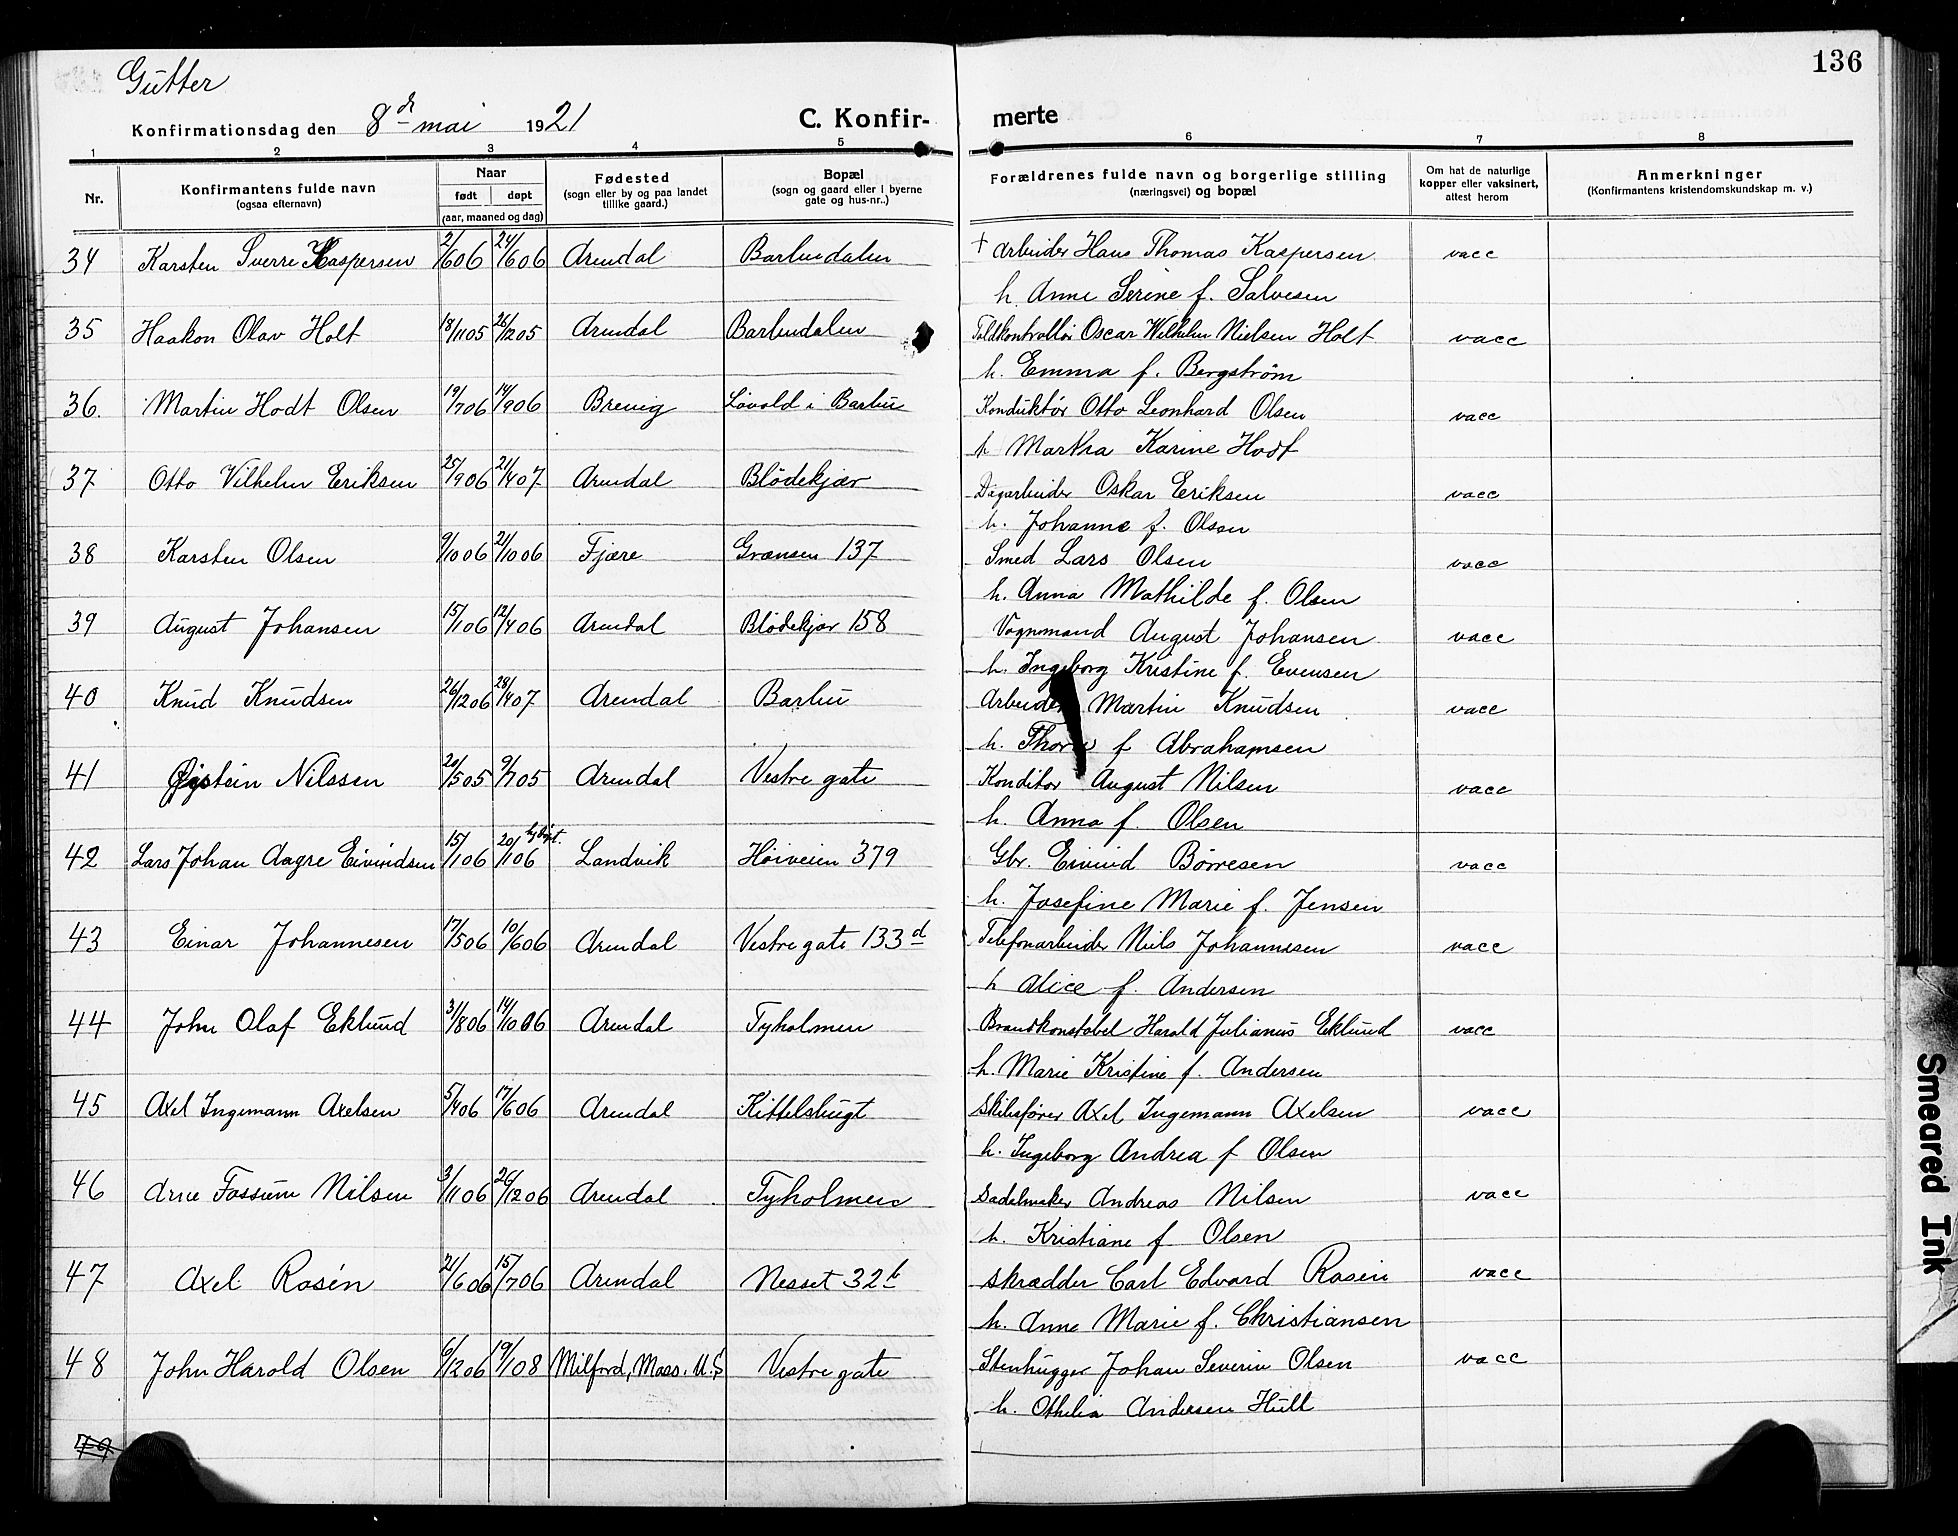 136
Gutter
Konfirmationsdag den 8de mai 1921
C. Konfirmerte
1 2 3 4 5 6 7 8
Nr.
Konfirmantens fulde navn
(ogsaa efternavn)
Naar
født døpt
(aar, maaned og dag)
Fødested
(sogn eller by og paa landet
tillike gaard.)
Bopæl
(sogn og gaard eller i byerne
gate og hus-nr.)
Forældrenes fulde navn og borgerlige stilling
(næringsvei) og bopæl
Om hat de naturlige
kopper eller vaksinert,
attest herom
Anmerkninger
(Konfirmantens kristendomskundskap m. v.)
34 Karsten Sverre Kaspersen 2/6 06 24/6 06 Arendal Barbudalen † Arbeider Hans Thomas Kaspersen vacc
h. Anne Serine f. Salvesen
35 Haakon Olav Holt 18/11 05 26/12 05 Arendal Barbudalen Toldkontrollør Oscar Wilhelm Nielsen Holt vacc
h. Emma f. Bergstrøm
36. Martin Hodt Olsen 19/7 06 14/9 06 Brevig Løvold i Barbu Konduktør Otto Leonhard Olsen vacc
h Martha Karine Hodt
37 Otto Vilhelm Eriksen 25/9 06 21/4 07 Arendal Blødekjær Dagarbeider Oskar Eriksen vacc
h. Johanne f. Olsen
38 Karsten Olsen 9/10 06 21/10 06 Fjære Grænsen 137 Smed Lars Olsen vacc
h. Anna Mathilde f. Olsen
39 August Johansen 15/1 06 12/4 06 Arendal Blødekjær 158 Vognmand August Johansen vacc
h. Ingeborg Kristine f. Evensen
40 Knud Knudsen 26/12 06 28/4 07 Arendal Barbu Arbeider Martin Knudsen vacc
h. f Abrahamsen
41 Øistein Nilssen 20/5 05 9/7 05 Arendal Vestre gate Konditor August Nilsen vacc
h. Anna f. Olsen
42 Lars Johan Aagre Eivindsen 15/1 06 20/1 06 hj.døpt. Landvik Høiveien 379 Gbr. Eivind Børresen vacc
h. Josefine Marie f. Jensen
43 Einar Johannesen 17/5 06 10/6 06 Arendal Vestre gate 133d Telefonarbeider Niels Johannesen vacc
h Alice f. Andersen
44 John Olaf Eklund 31/8 06 14/10 06 Arendal Tyholmen Brandkonstabel Harald Julianus Eklund vacc
h. Marie Kristine f. Andersen
45 Axel Ingemann Axelsen 5/4 06 17/6 06 Arendal Kittelsbugt Skibsfører Axel Ingemann Axelsen vacc
h. Ingeborg Andrea f Olsen
46 Arne Fossum Nilsen 3/11 06 26/12 06 Arendal Tyholmen Sadelmaker Andreas Nilsen vacc
h. Kristiane f Olsen
47 Axel Rosén 21/6 06 15/7 06 Arendal Nesset 32b Skrædder Carl Edvard Rosén vacc
h. Anne Marie f. Christiansen
48 John Harold Olsen 6/12 06 19/1 08 Milford, Mass. U.S Vestre gate Stenhugger Johan Severin Olsen vacc
h. Othelia Andersen Hull
Smeared Ink